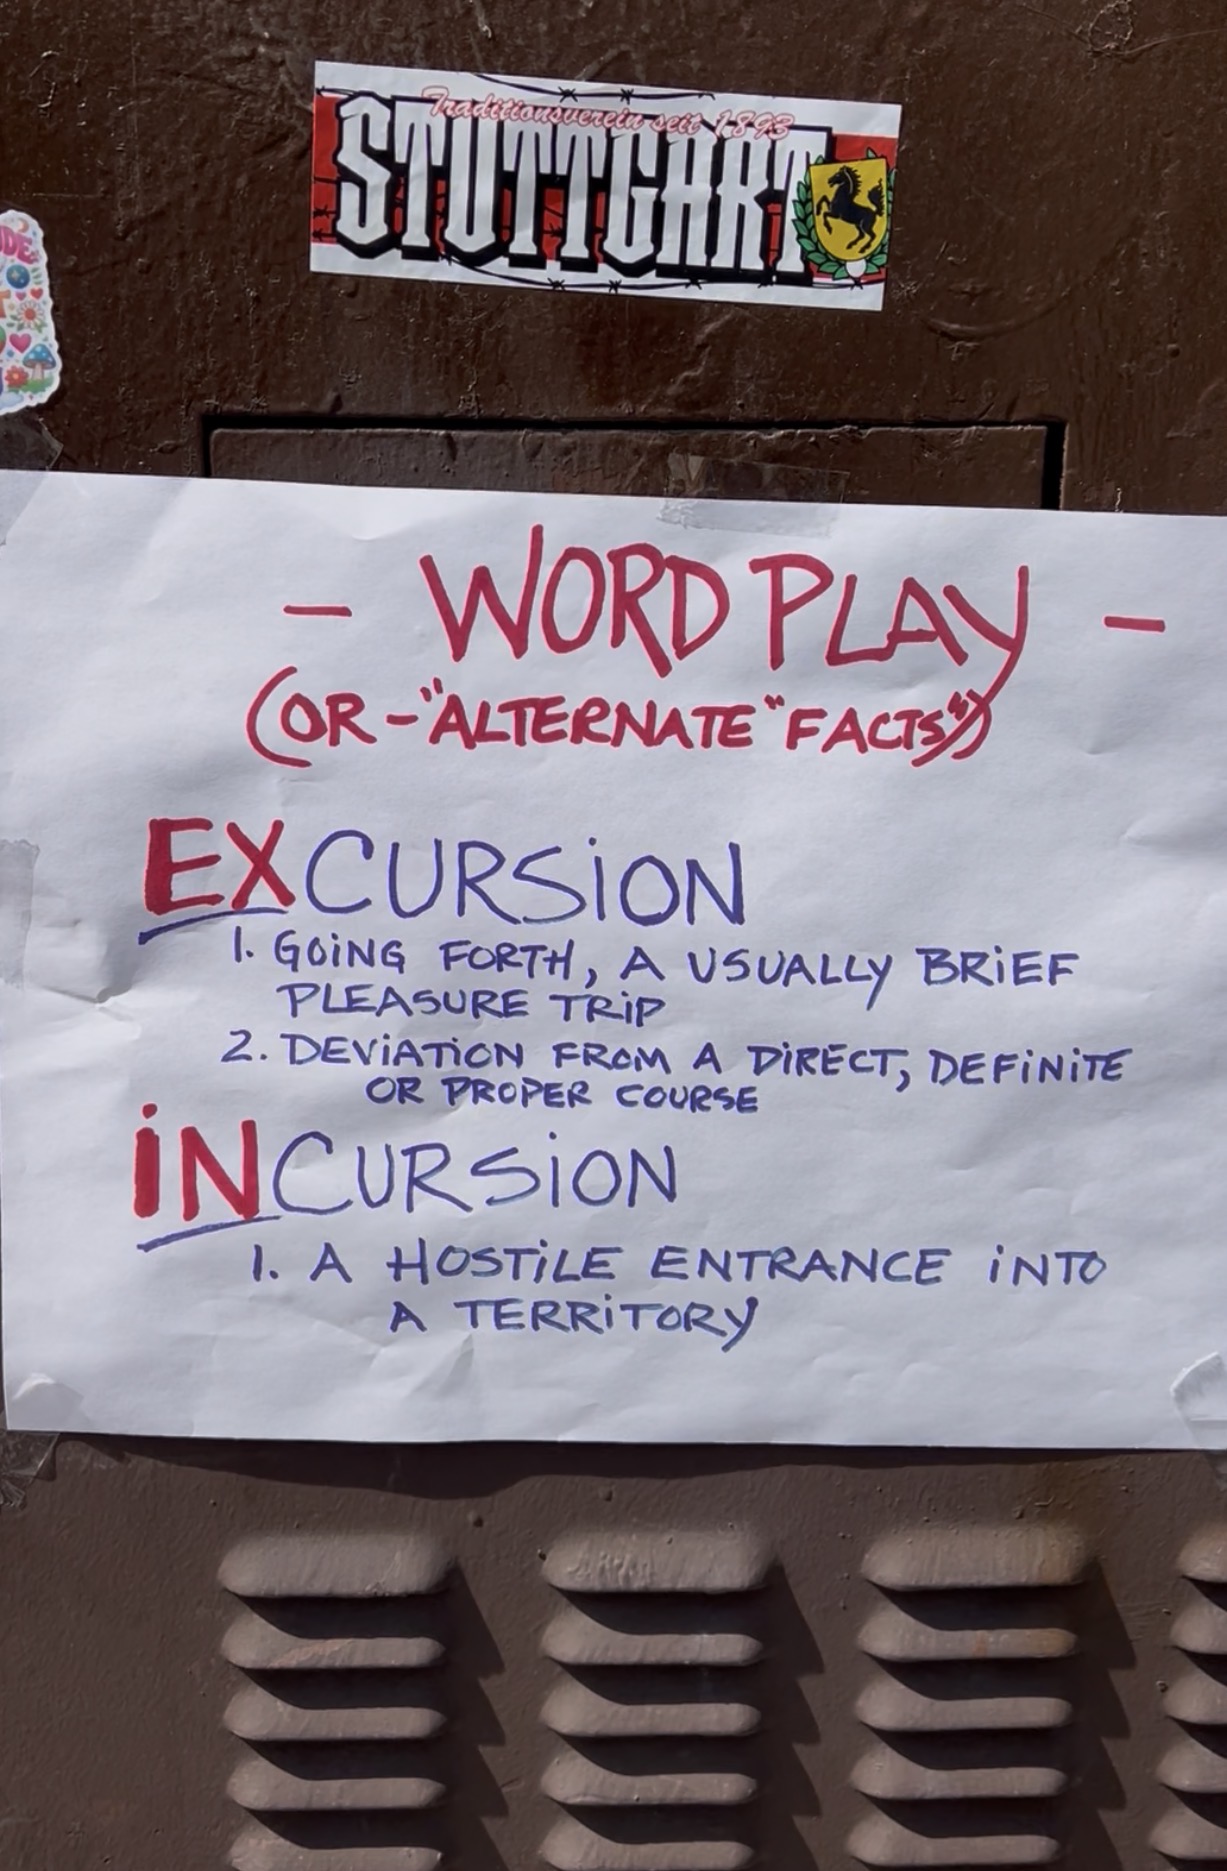 Traditionsverein seit 1893
STUTTGART
- WORD PLAY -
(OR - "ALTERNATE" FACTS")
EXCURSION
1. GOING FORTH, A USUALLY BRIEF
PLEASURE TRIP
2. DEVIATION FROM A DIRECT, DEFINITE
OR PROPER COURSE
INCURSION
1. A HOSTILE ENTRANCE INTO
A TERRITORY